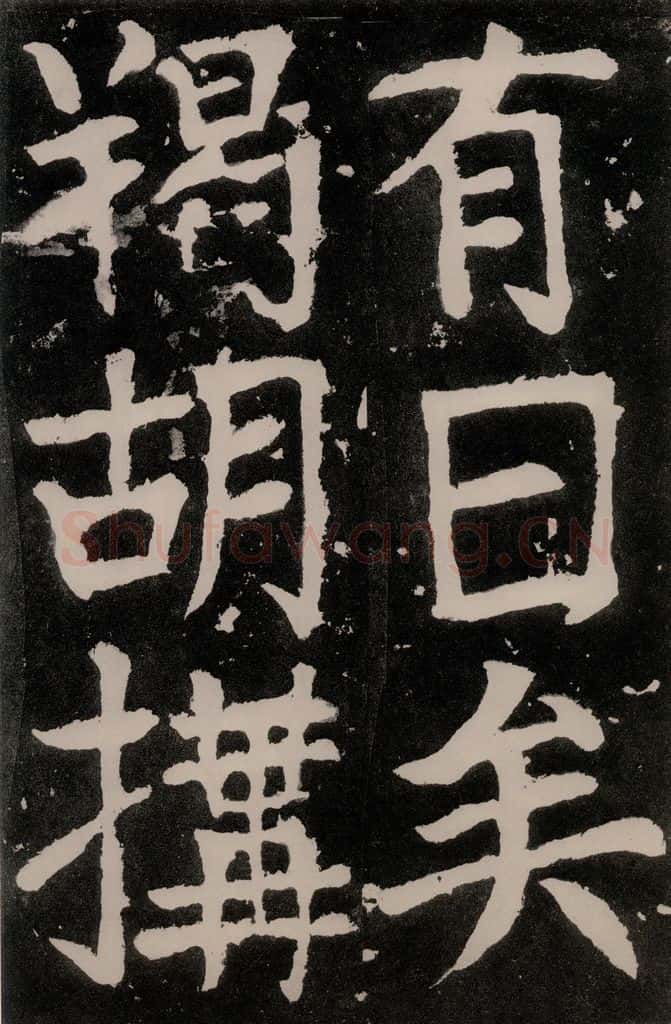 有日矣
羯胡搆
Shufawang.CN